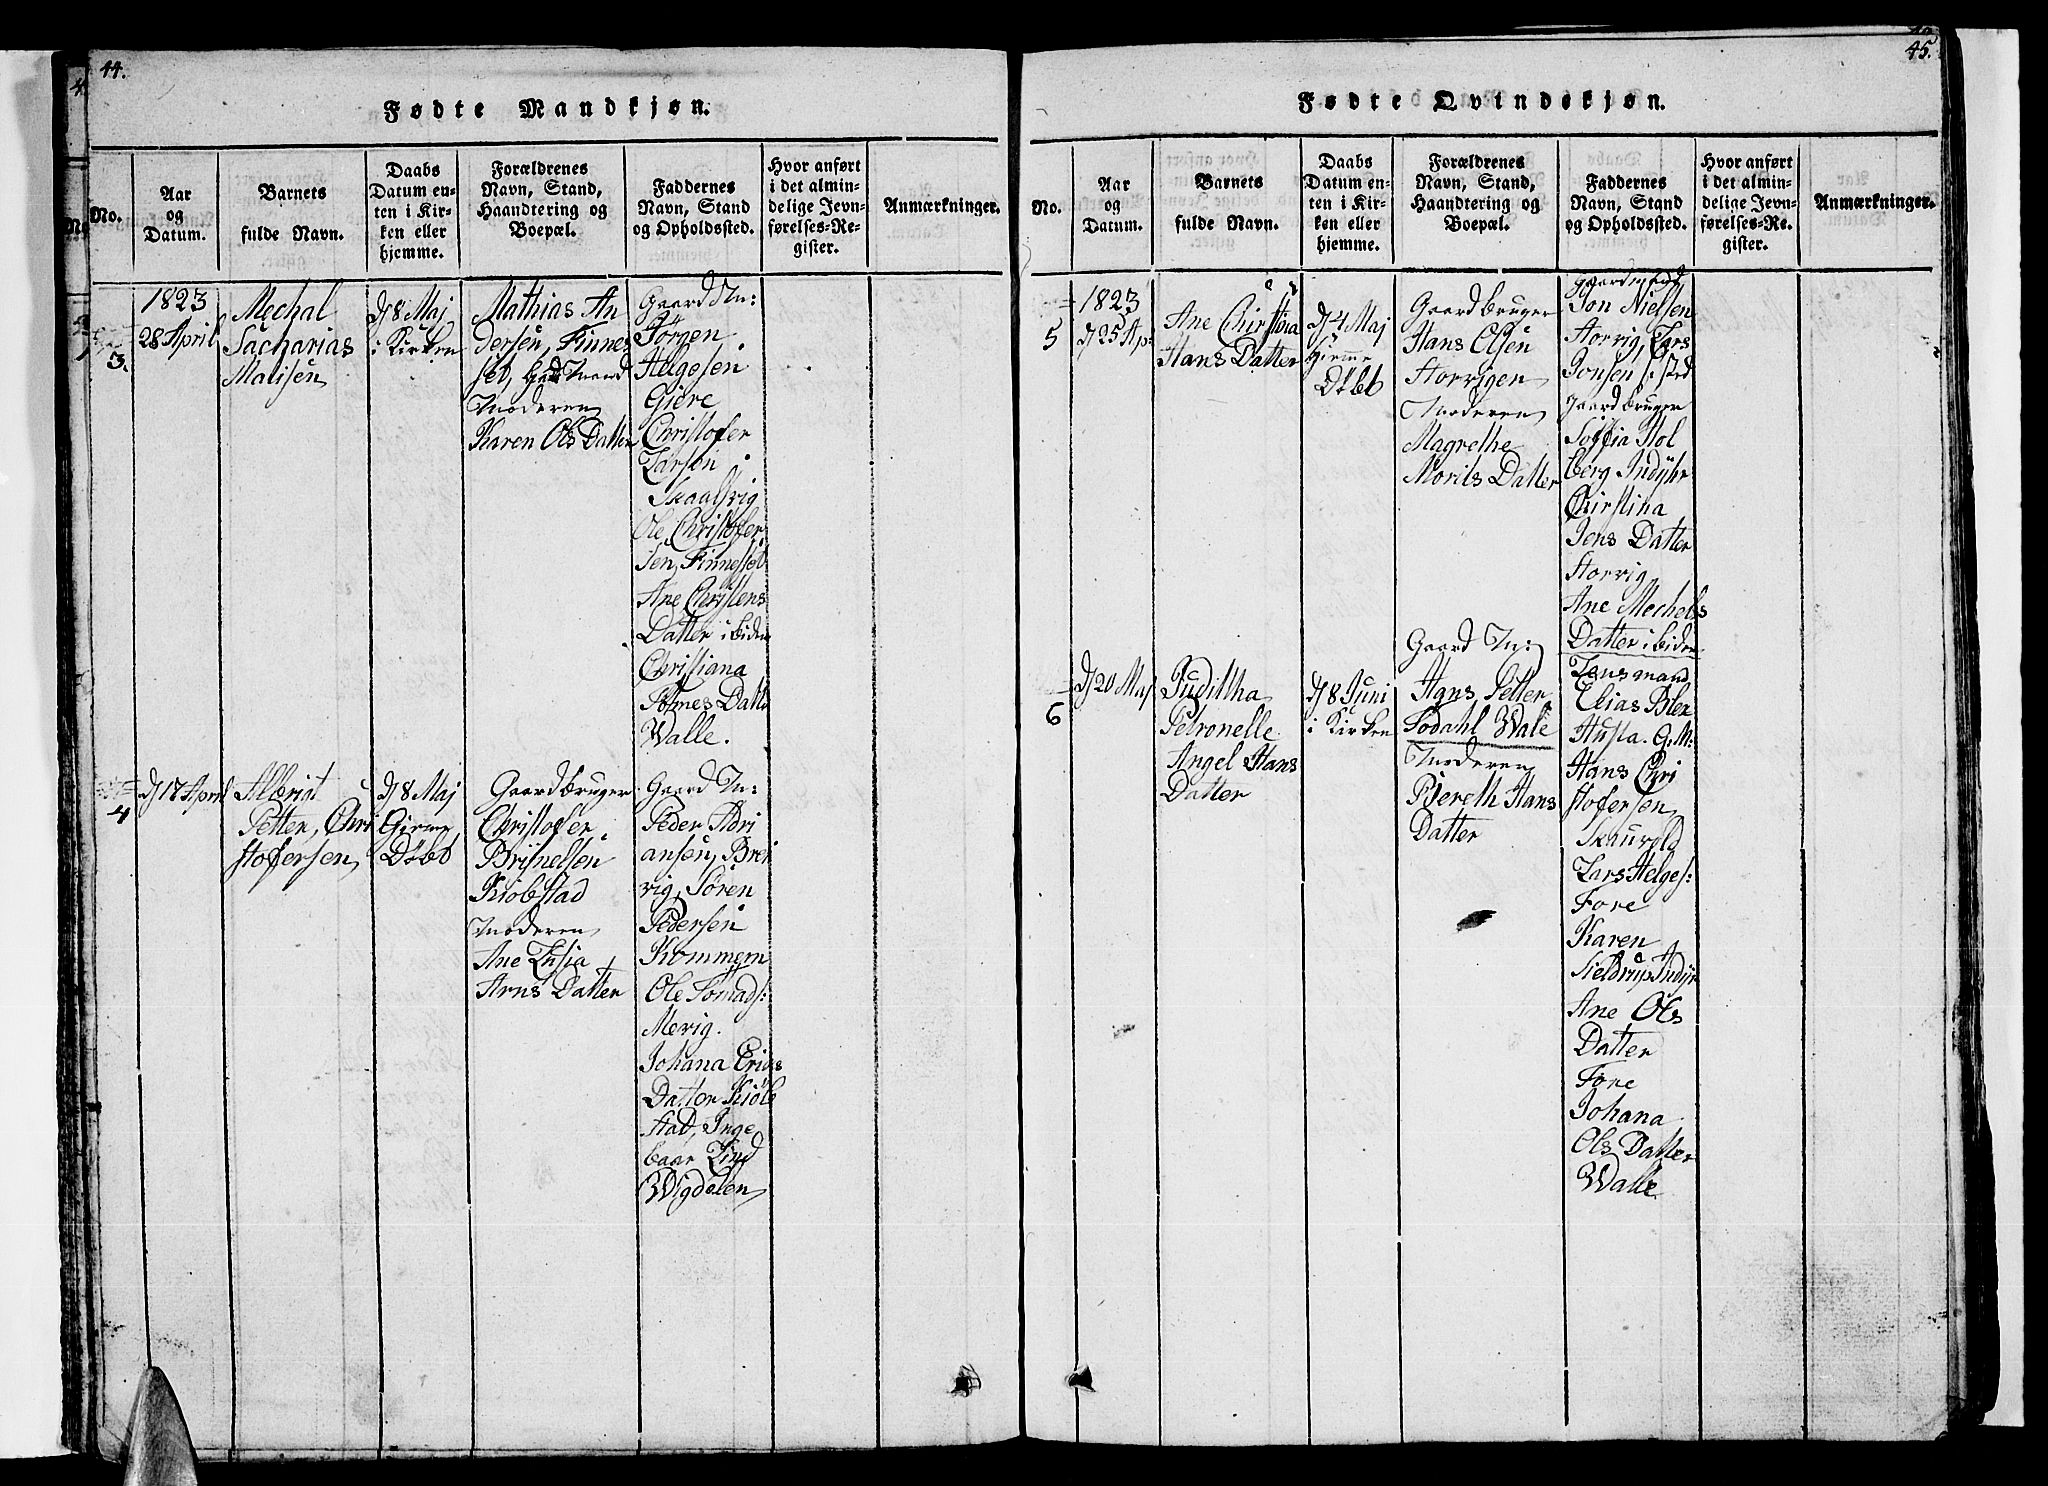 44.
Fødte Mandkjøn.
No.
Aar
og
Datum.
Barnets
fulde Navn.
Daabs
Datum en-
ten i Kir-
ken eller
hjemme.
Forældrenes
Navn, Stand,
Haandtering og
Boepæl.
Faddernes
Navn, Stand
og Opholdssted.
Hvor anført
i det almin-
delige Jevn-
førelses-Re-
gister.
Anmærkninger.
3.
1823
28 April
Mechal
Sacharias
Matisen
D 8 Maj
i Kirken
Mathias An
dersen, Finnes
set,
Moderen
Karen Ols Datter
Gaard M:
Jörgen
Helgesen
Giere
Christofer
Larsen
Skaalsvig
Ole Christofer
sen, Finneset
Ane Christens
Datter ibidem
Christiana
Tomes Datter
Walle.
4
D 17 April
Albrigt
Petter, Chri
stofersen
D 8 Maj
Döbt
Gaardbruger
Christofer
Kiobstad
Moderen
Ane Lusia
Arns Datter
Gaard M:
Peder Adri
ansen, Brei
vig, Sören
Pedersen
Kommem
Ole Tomads:
Mevig.
Johana Erics
Datter Kiöb
stad, Inge
baar Lind
Wigdelen
45.
Fødte Qvindekjøn.
No.
Aar
og
Datum.
Barnets
fulde Navn.
Daabs
Datum en-
ten i Kir-
ken eller
hjemme.
Forældrenes
Navn, Stand,
Haandtering og
Boepæl.
Faddernes
Navn, Stand
og Opholdssted.
Hvor anført
i det almin-
delige Jevn-
førelses-Re-
gister.
Anmærkninger.
5
1823
D 25 Ap:
Ane Christina
Hans Datter
D 4 Maj
Hiemme
Döbt
Gaardbruger
Hans Olsen
Storvigen
Moderen
Magrethe
Morits Datter
Jon Nielsen
Storvig, Lars
Jonsen sted
Gaardbruger
Soffia Hol
berg Indyhr
Christina
Jens Datter
Storvig
Ane Mechels
Datter ibidem
6
D 20 Maj
Judittha
Petronelle
Angel Hans
Datter
D 8 Juni
i Kirken
Gaard M:
Hans Petter
Sodahl Wale
Moderen
Bereth Hans
Datter
Lensmand
Elias Blex
Husta. G. M:
Hans Chri
stofersen
Skauvold
Lars Helges:
Fore
Karen
Sieldrup Indyr
Ane Ols
Datter
Fore
Johana
Ols Datter
Walle